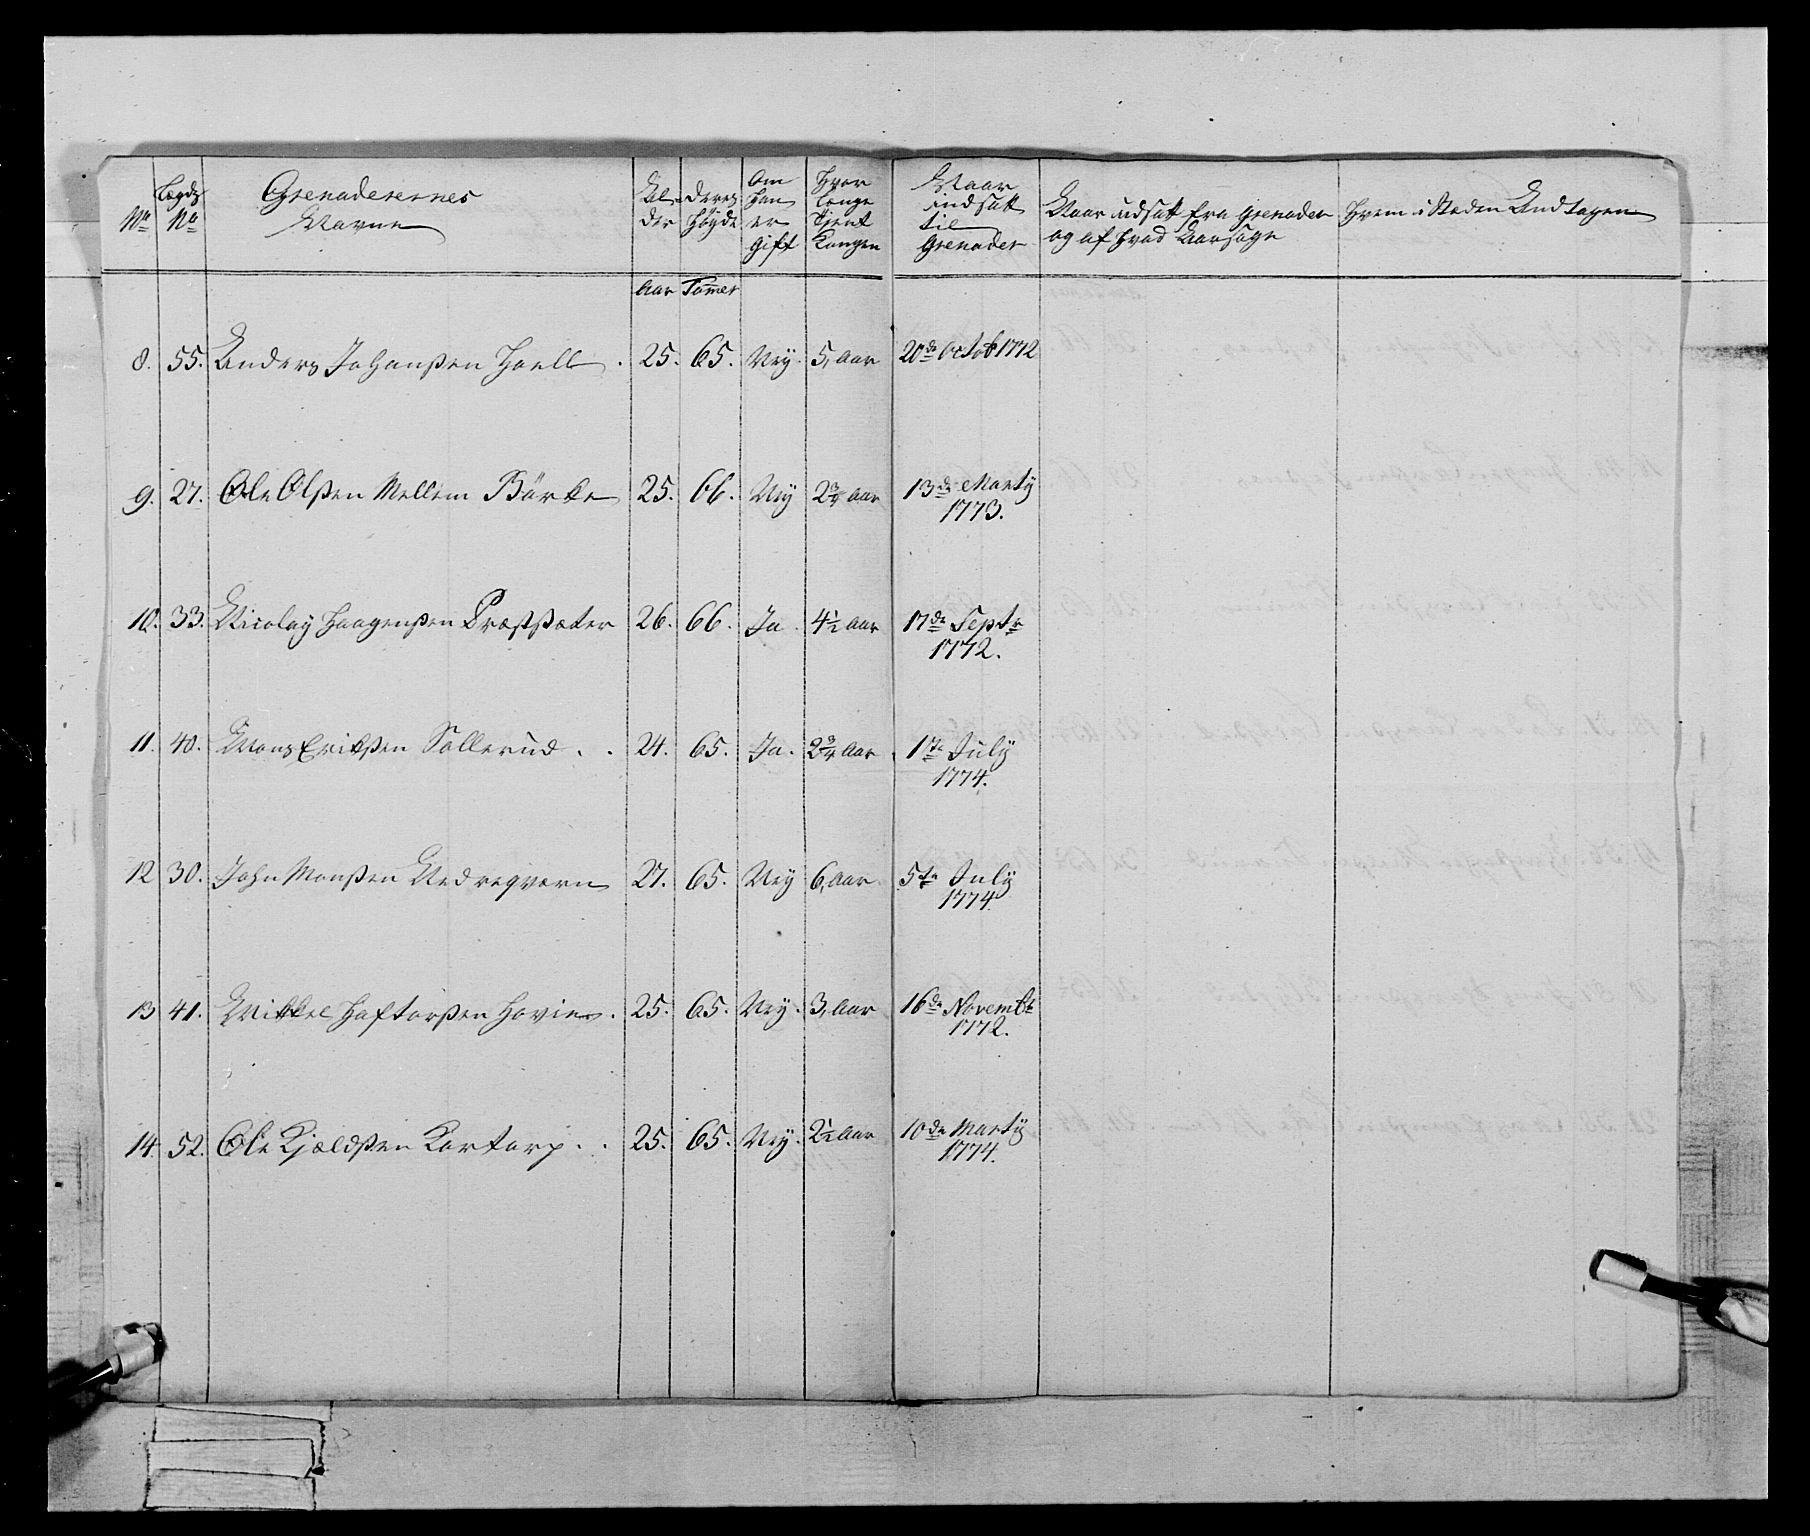 No Lægds No Grenaderernes Navne Al-der Deres Høyde Om Han er Gift Hvor Længe Tient Kongen Naar indsatt til Grenader Naar udsatt fra Grenader og af Hvad Aarsage Hvem i Steden Andtagen
Aar Tommer
8. 55. Anders Johanßen Hoell . 25. 65. Ney. 5, Aar 20de Octob 1772
9. 27. Ole Olßen Mellem Börke 25. 66. Ney 2 3/4 Aar 13de Marty
1773.
10. 33. Nicolay Haagenßen Præstsæter 26. 66. Ja. 4 1/2 Aar 17de Septr
1772.
11. 40. Mons Erikßen Sollerud . . 24. 65. Ja. 2 3/4 Aar 1te July
1774.
12 30. John Monßen Nedreqvern 27. 65. Ney 6, Aar. 5te July
1774
13 41. Mikkel Haftorßen Hovie . 25. 65. Ney. 3, Aar 16de Novembr
1772.
14. 52. Ole Kjeldßen Kortorp . . 25. 65. Ney. 2 1/2 Aar 10de Marty
1774.